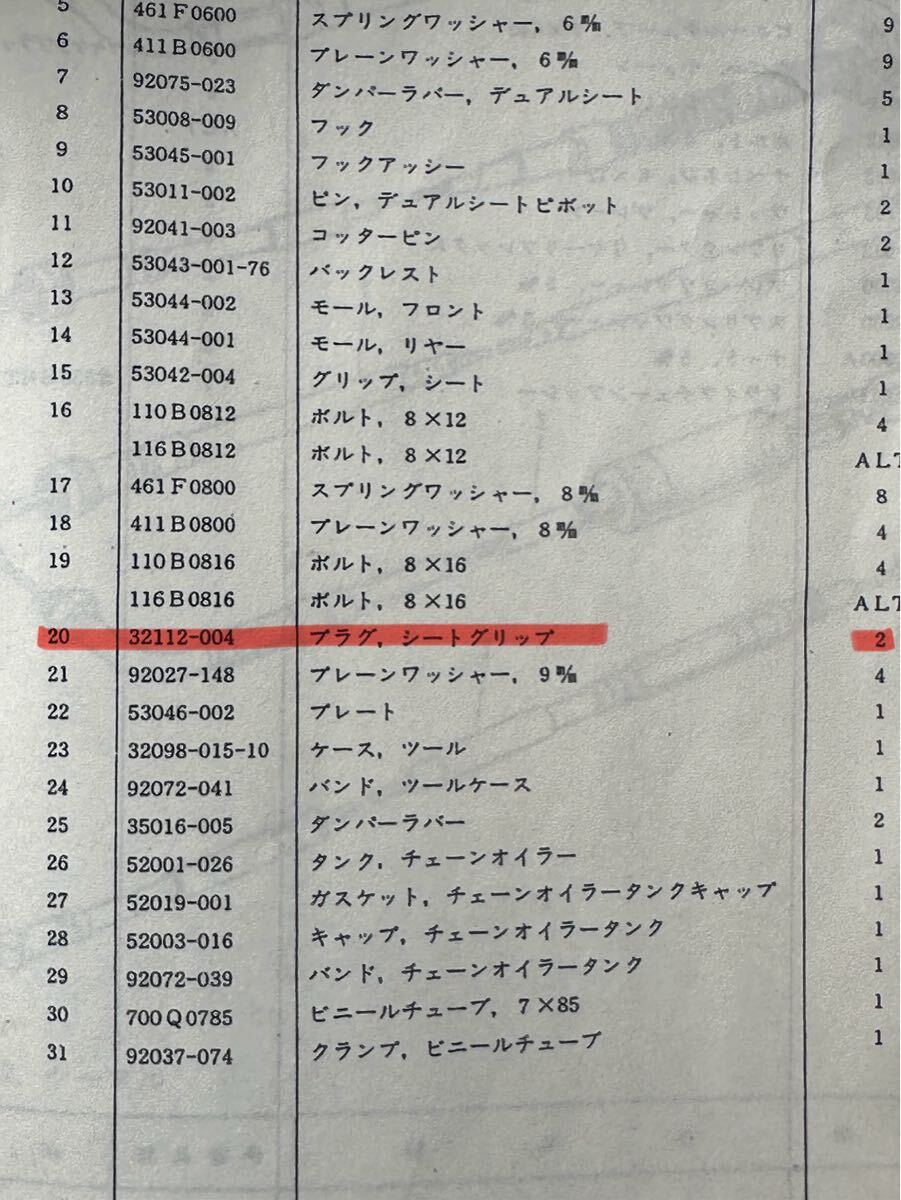 5 461F0600 スプリングワッシャー, 6㎜ 9
6 411B0600 プレーンワッシャー, 6㎜ 9
7 92075-023 ダンパーラバー, デュアルシート 5
8 53008-009 フック 1
9 53045-001 フックアッシー 1
10 53011-002 ピン, デュアルシートピボット 2
11 92041-003 コッターピン 2
12 53043-001-76 バックレスト 1
13 53044-002 モール, フロント 1
14 53044-001 モール, リヤー 1
15 53042-004 グリップ, シート 1
16 110B0812 ボルト, 8×12 4
116B0812 ボルト, 8×12 ALT
17 461F0800 スプリングワッシャー, 8㎜ 8
18 411B0800 プレーンワッシャー, 8㎜ 4
19 110B0816 ボルト, 8×16 4
116B0816 ボルト, 8×16 ALT
20 32112-004 プラグ, シートグリップ 2
21 92027-148 プレーンワッシャー, 9㎜ 4
22 53046-002 プレート 1
23 32098-015-10 ケース, ツール 1
24 92072-041 バンド, ツールケース 1
25 35016-005 ダンパーラバー 2
26 52001-026 タンク, チェーンオイラー 1
27 52019-001 ガスケット, チェーンオイラータンクキャップ 1
28 52003-016 キャップ, チェーンオイラータンク 1
29 92072-039 バンド, チェーンオイラータンク 1
30 700Q0785 ビニールチューブ, 7×85 1
31 92037-074 クランプ, ビニールチューブ 1